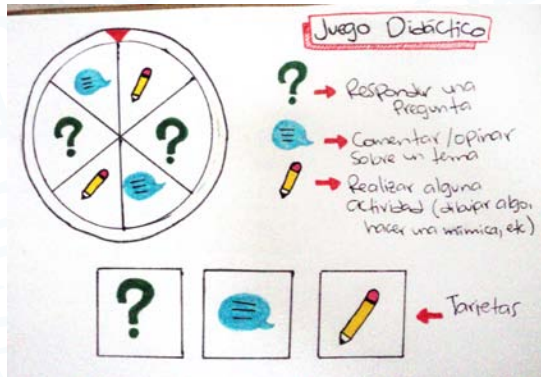 Juego Didáctico
Responder una
Pregunta
Comentar/opinar
sobre un tema
Realizar alguna
actividad (dibujar algo,
hacer una mímica, etc)
Tarjetas